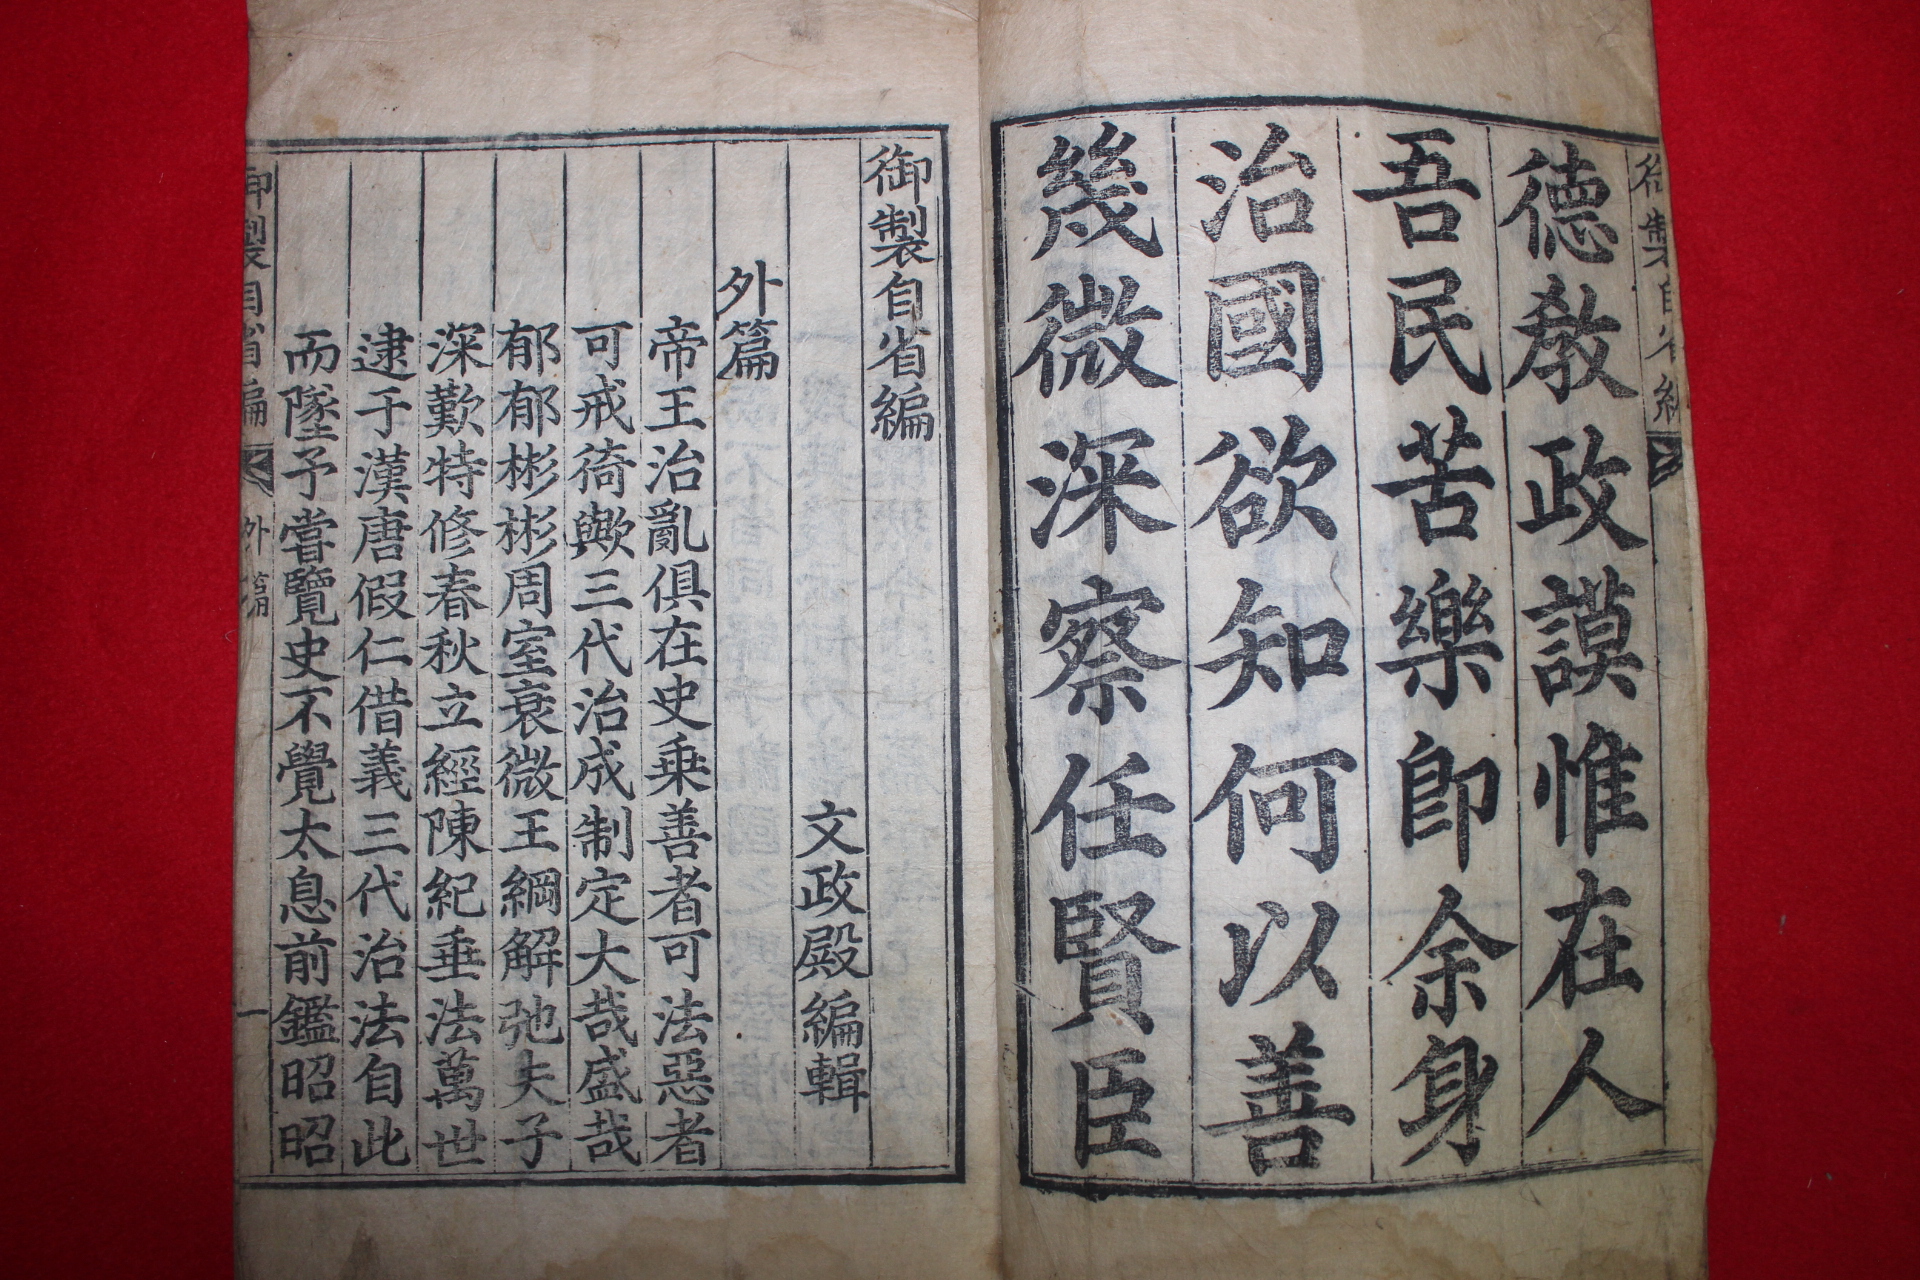 御製自省編
德教政謨惟在人
吾民苦樂卽余身
治國欲知何以善
幾微深察任賢臣
御製自省編
文政殿編輯
外篇
帝王治亂俱在史乗善者可法惡者
可戒猗歟三代治成制定大哉盛哉
郁郁彬彬周室衰微王綱解弛夫子
深歎特修春秋立經陳紀垂法萬世
逮于漢唐假仁借義三代治法自此
而墜予嘗覽史不覺太息前鑑昭昭
御製自省編 外篇 一